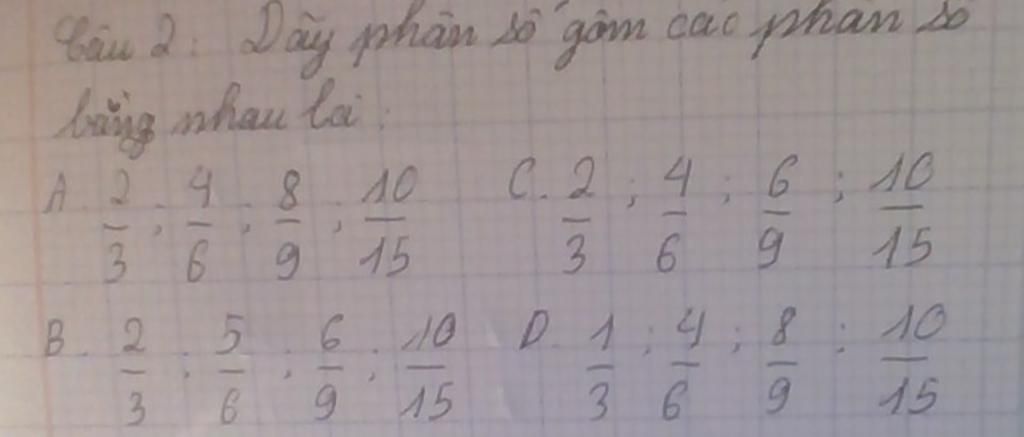 Câu 2: Dãy phân số gồm các phân số
bằng nhau là:
A. 2/3 ; 4/6 ; 8/9 ; 10/15 C. 2/3 ; 4/6 ; 6/9 ; 10/15
B. 2/3 ; 5/6 ; 6/9 ; 10/15 D. 1/3 ; 4/6 ; 8/9 ; 10/15